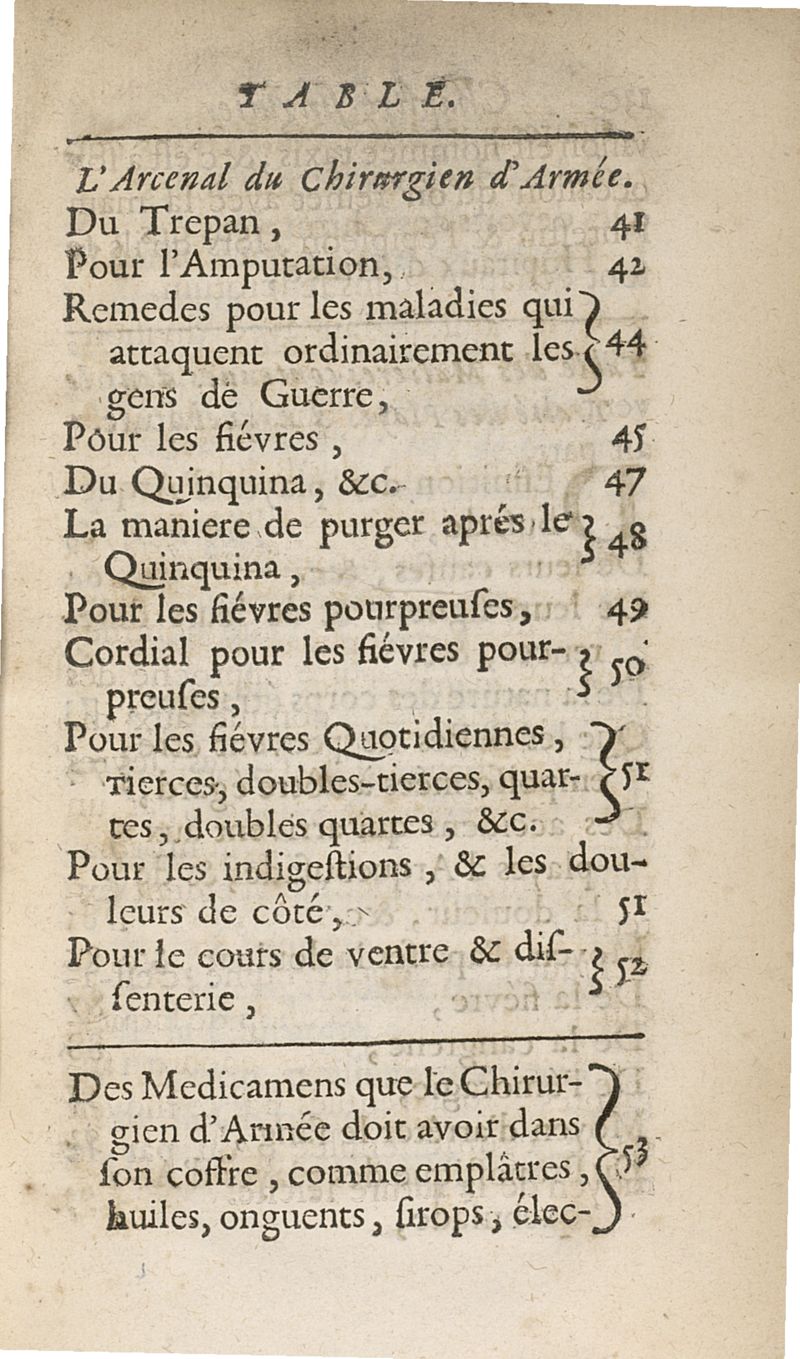 TABLE.
L'Arcenal du Chirurgien d'Armée.
Du Trepan, 41
Pour l'Amputation, 42
Remedes pour les maladies qui
attaquent ordinairement les 44
gens de Guerre,
Pour les fiévres, 45
Du Quinquina, &c. 47
La maniere de purger aprés le
Quinquina, 48
Pour les fiévres pourpreuſes, 49
Cordial pour les fiévres pour-
preuſes, 50
Pour les fiévres Quotidiennes,
Tierces, doubles-tierces, quar- 51
tes, doubles quartes, &c.
Pour les indigeſtions, & les dou-
leurs de côté, 51
Pour le cours de ventre & diſ-
ſenterie, 52
Des Medicamens que le Chirur-
gien d'Armée doit avoir dans
ſon coffre, comme emplâtres, 53
huiles, onguents, ſirops, élec-